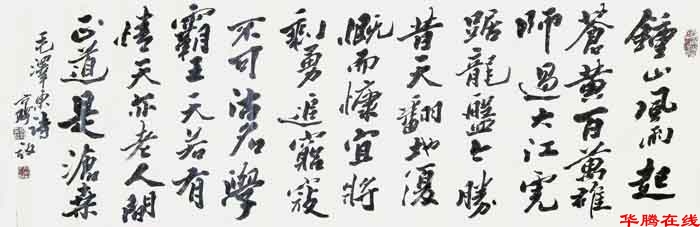 鍾山風雨起
蒼黃百萬雄
師過大江虎
踞龍盤今勝
昔天翻地覆
慨而慷宜將
剩勇追窮寇
不可沽名學
霸王天若有
情天亦老人間
正道是滄桑
毛澤東詩
华腾在线